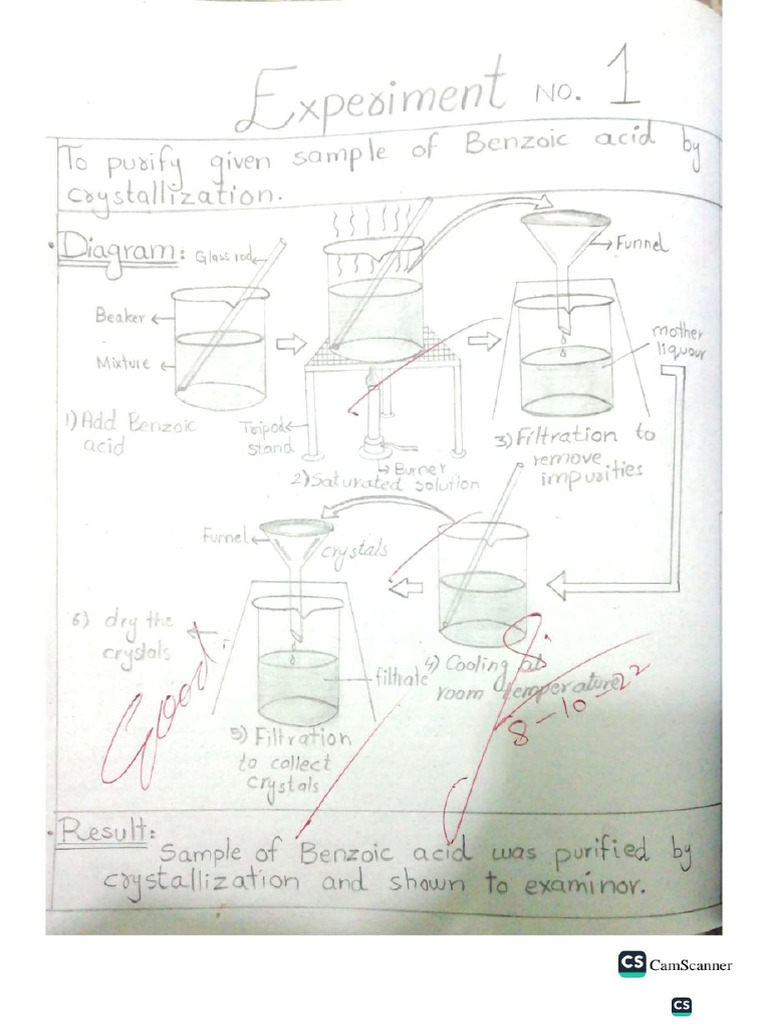 Experiment NO. 1
To purify given sample of Benzoic acid by
crystallization.
Diagram:
Glass rod
Beaker
Mixture
1) Add Benzoic
acid
Tripod
stand
Burner
2) Saturated solution
Funnel
mother
liquour
3) Filtration to
remove
impurities
Funnel
crystals
4) Cooling at
room temperature
filtrate
5) Filtration
to collect
crystals
6) dry the
crystals
Good
8-10-22
Result:
Sample of Benzoic acid was purified by
crystallization and shown to examinor.
CS CamScanner
CS